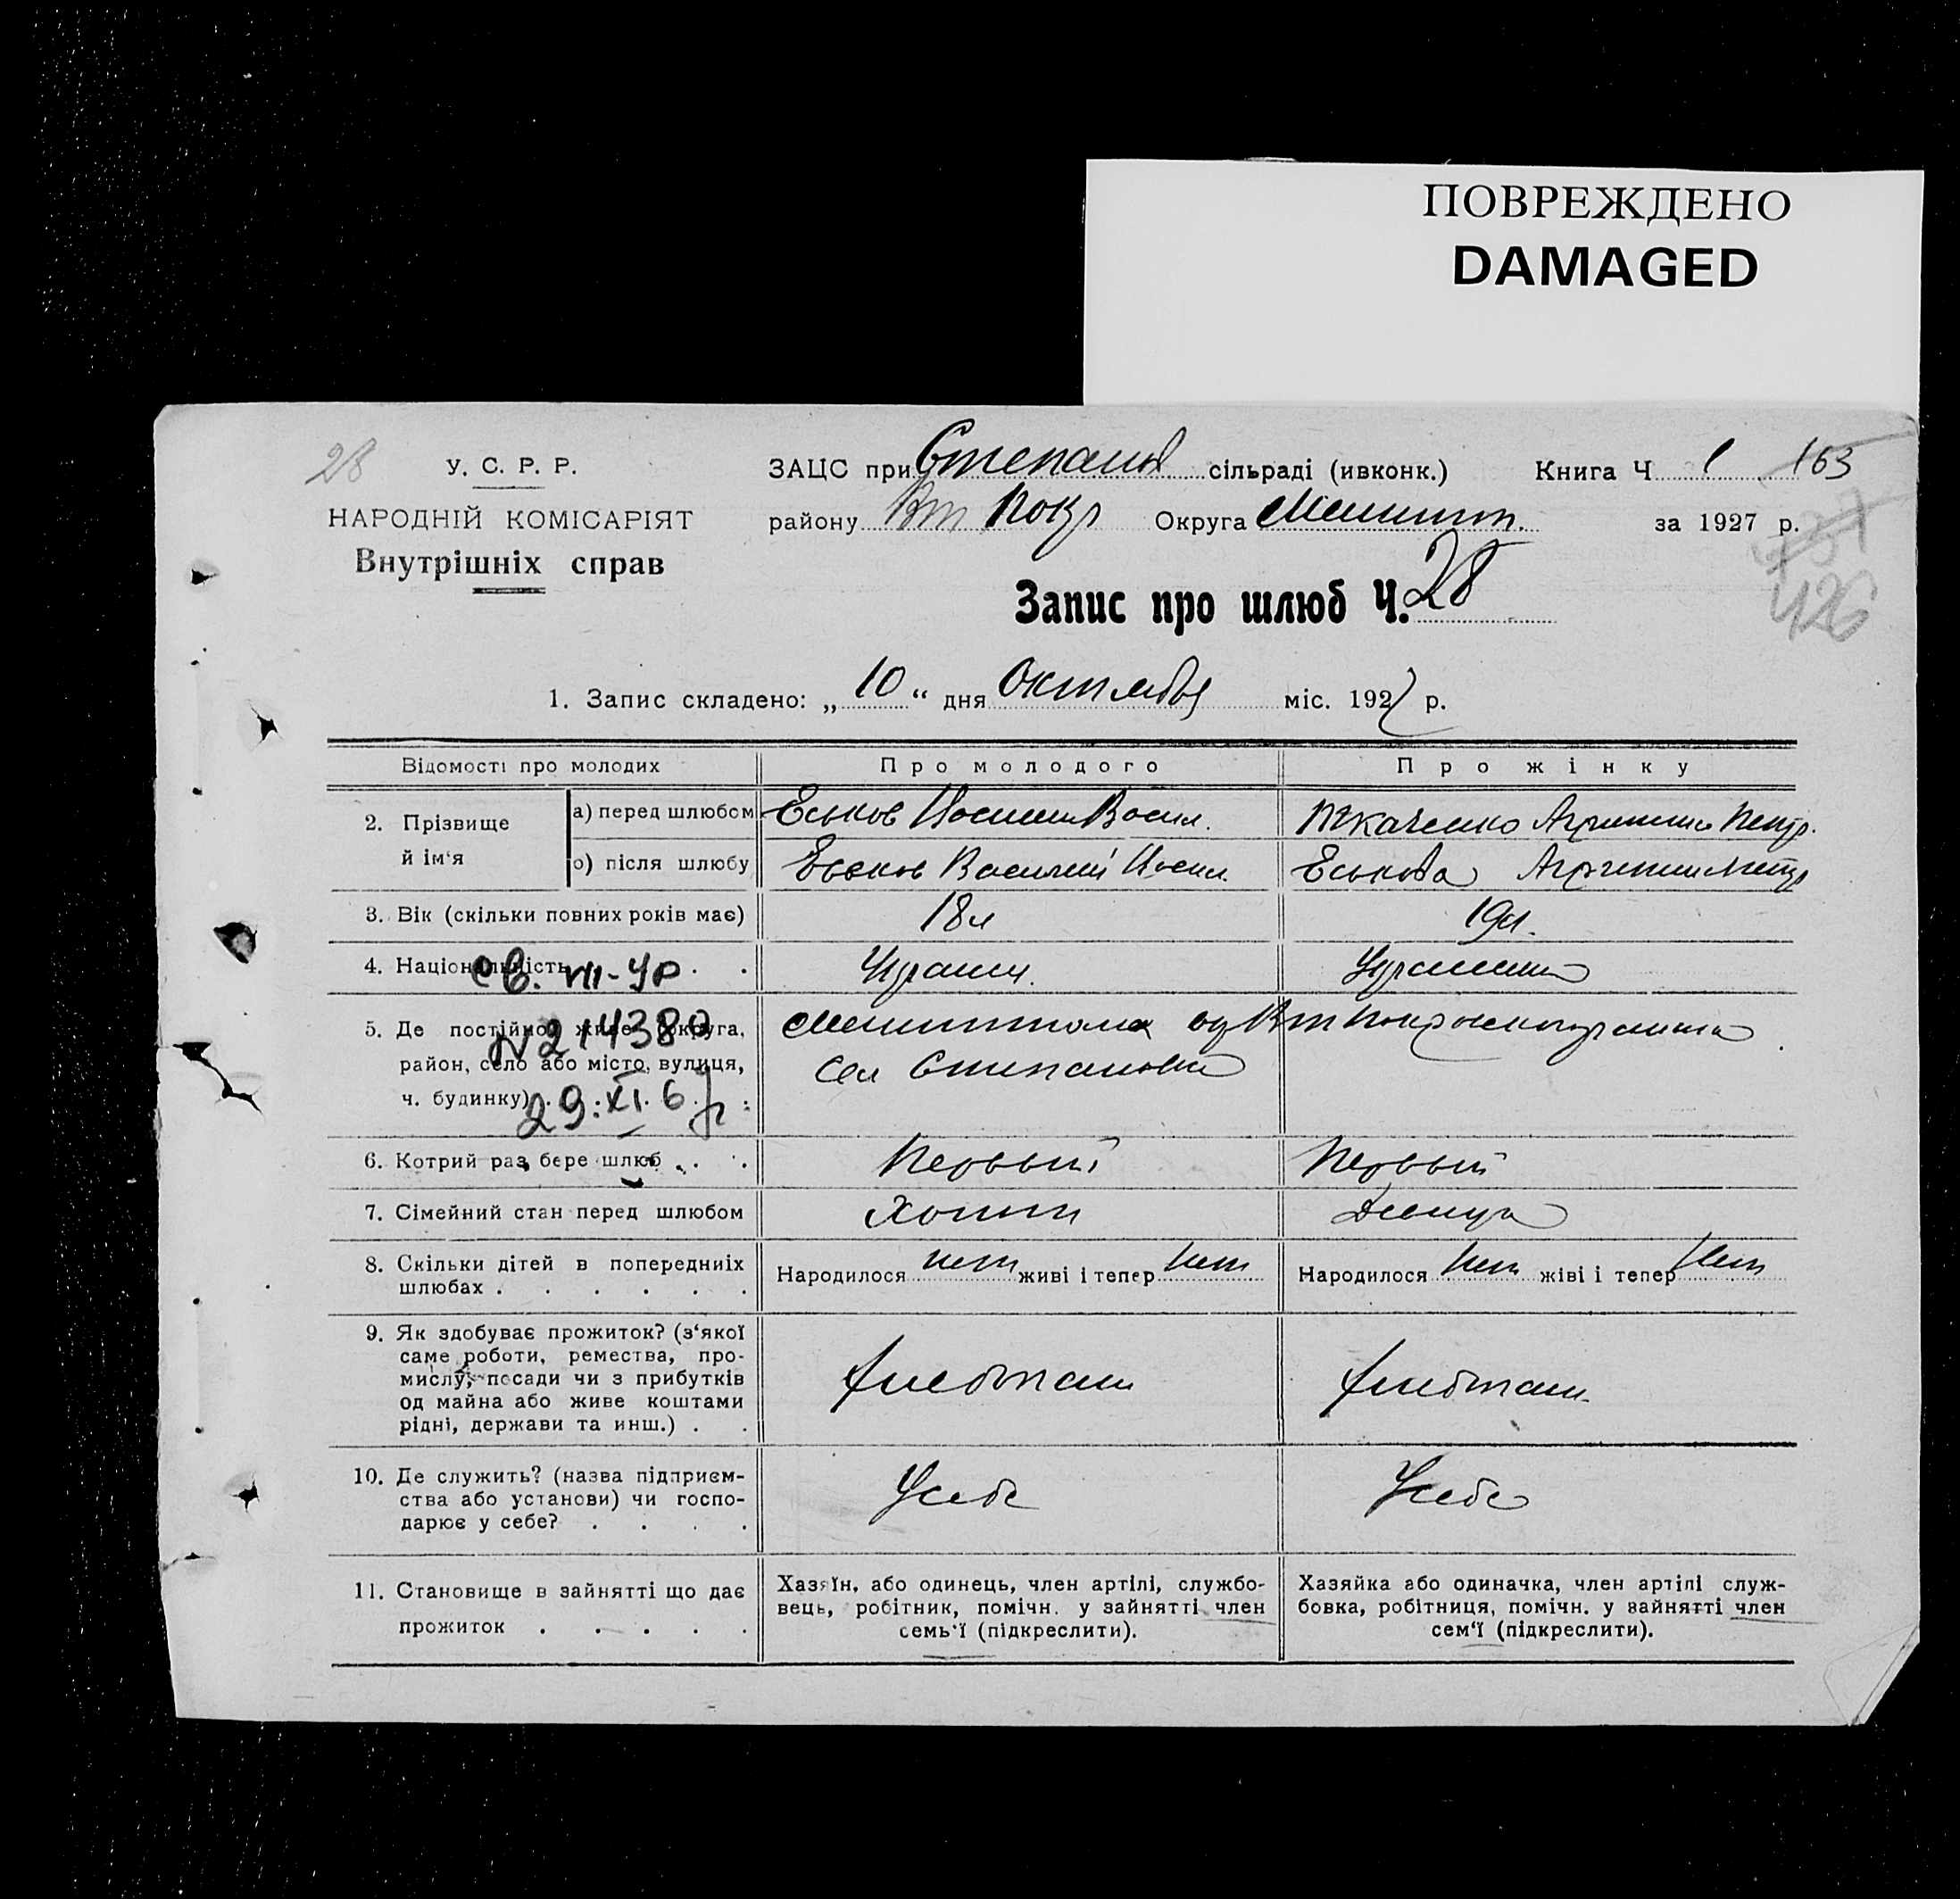 ПОВРЕЖДЕНО
DAMAGED
28
У. С. Р. Р.
НАРОДНІЙ КОМІСАРІЯТ
Внутрішніх справ
ЗАЦС при Степанов сільраді (ивконк.) Книга Ч 1 163
району Вт Покр Округа Мелитоп. за 1927 р.
426
Запис про шлюб Ч. 28
1. Запис складено: „ 10 “ дня Октября міс. 1927 р.
Відомості про молодих Про молодого Про жінку
2. Прізвище й ім‘я
а) перед шлюбом Еськов Василь. Ткаченко Петр.
о) після шлюбу Еськов Василий Иосип. Еськова Петр
3. Вік (скільки повних років має) 18л 19л.
4. Національність Украин. Украинка
св. VII-УР
5. Де постійно живе (округа,
район, село або місто, вулиця,
ч. будинку)
№ 214380
29. XI. 67
Вт Покровского
Сел Степановка
6. Котрий раз бере шлюб Первый Первый
7. Сімейний стан перед шлюбом Холост Девица
8. Скільки дітей в попередниіх
шлюбах
Народилося нет живі і тепер нет Народилося нет жіві і тепер нет
9. Як здобуває прожиток? (з‘якої
саме роботи, ремества, про-
мислу, посади чи з прибутків
од майна або живе коштами
рідні, держави та инш.)
хлебопаш хлебопаш.
10. Де служить? (назва підприєм-
ства або установи) чи госпо-
дарює у себе?
У себе У себе
11. Становище в зайнятті що дає
прожиток
Хазяїн, або одинець, член артілі, службо-
вець, робітник, помічн. у зайнятті член
семь‘ї (підкреслити).
Хазяйка або одиначка, член артілі служ-
бовка, робітниця, помічн. у зайнятті член
сем‘ї (підкреслити).